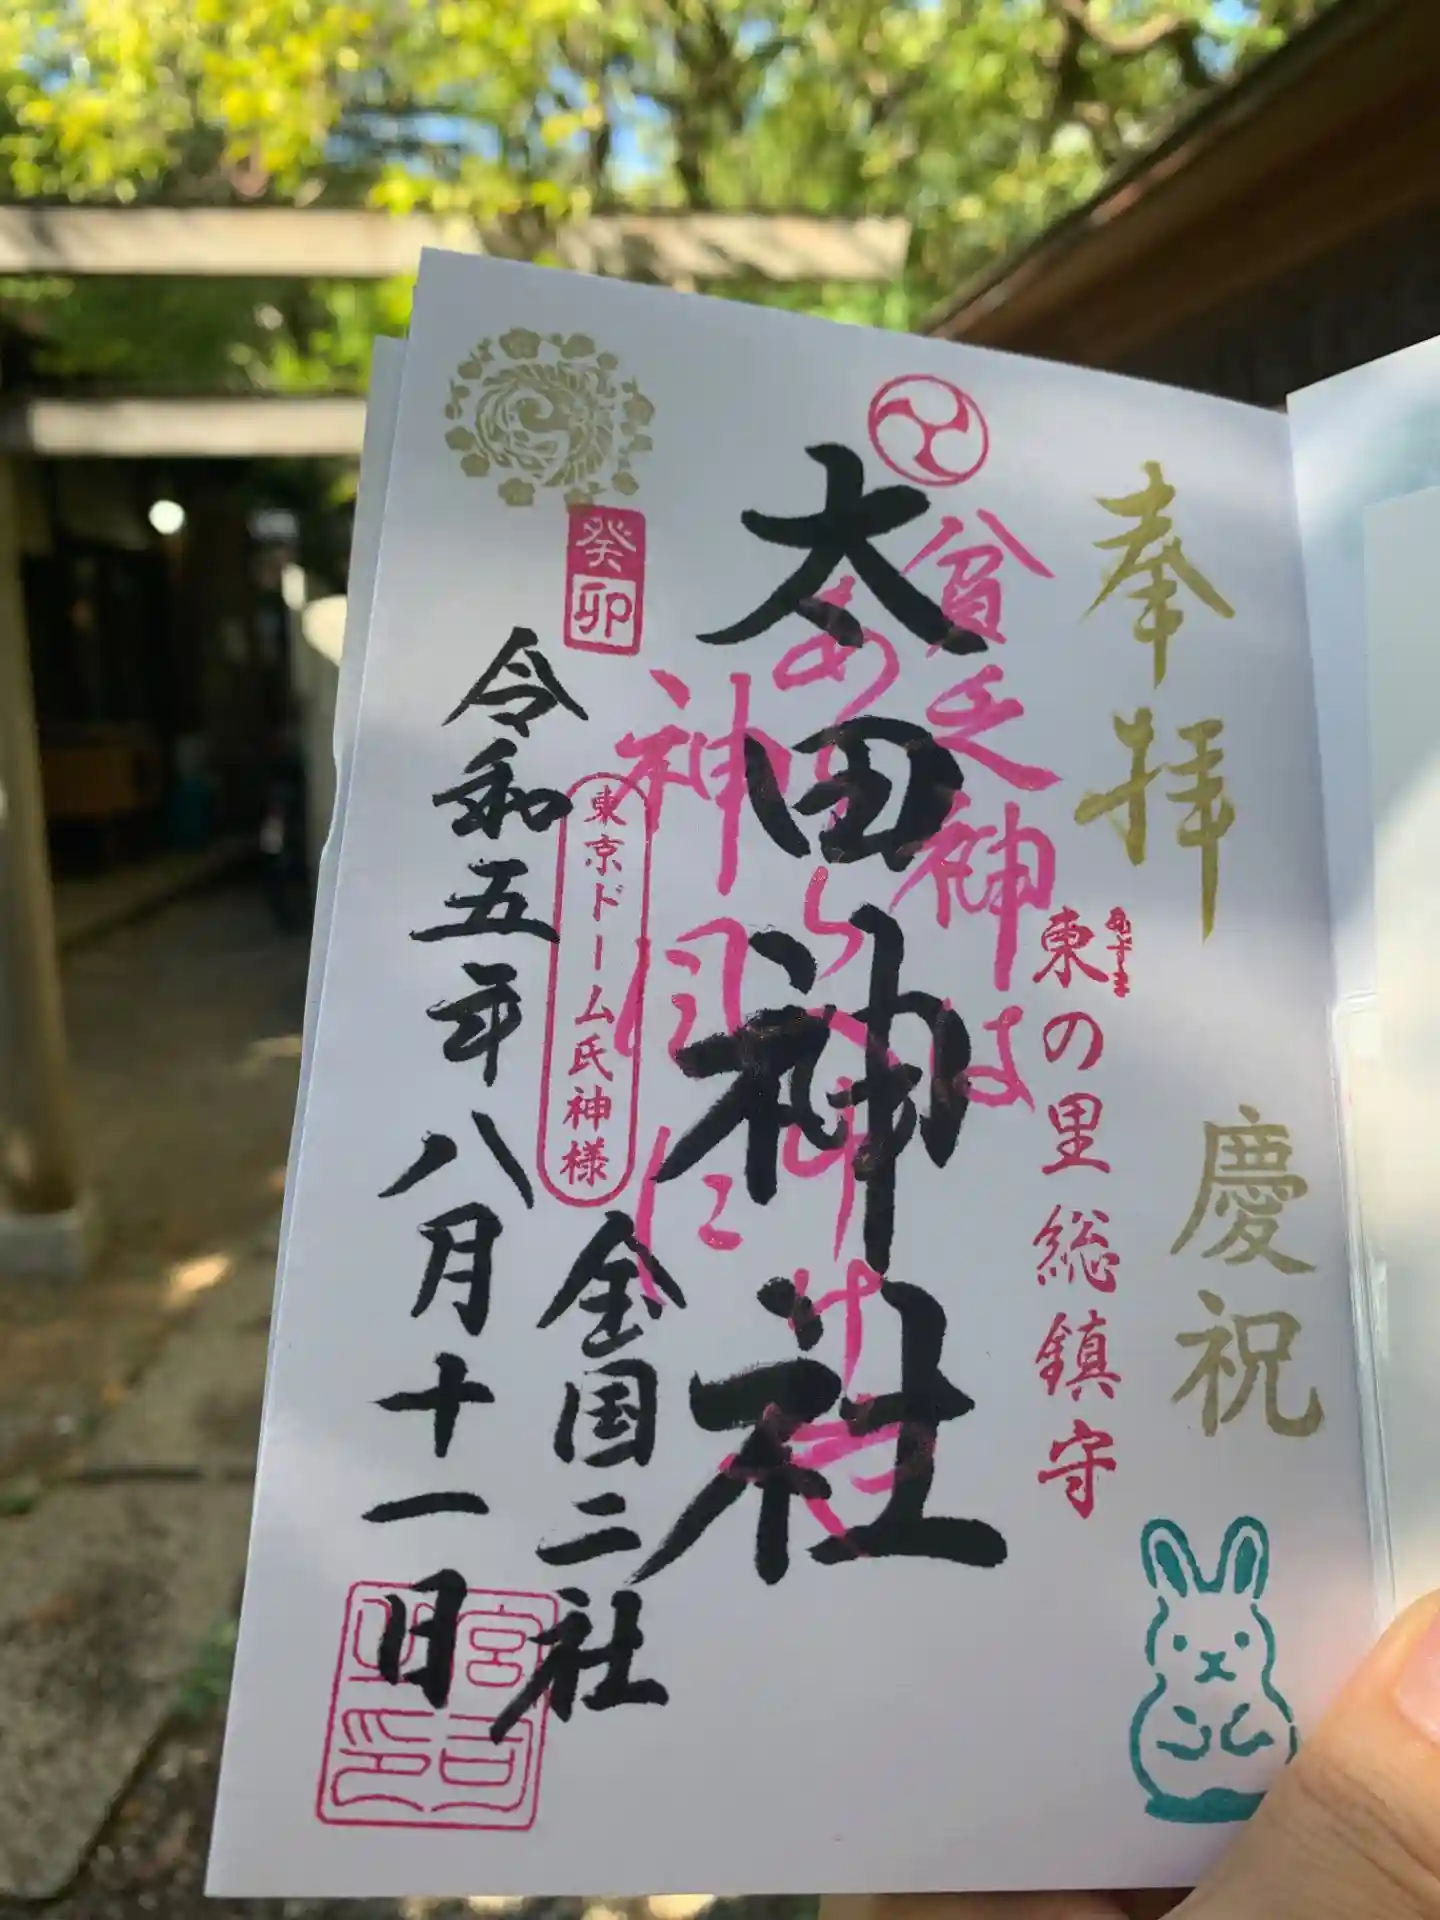 奉拝
慶祝
あずま
東の里総鎮守
貧乏神は
太田神社
全国二社
東京ドーム氏神様
癸卯
令和五年八月十一日
宮司之印